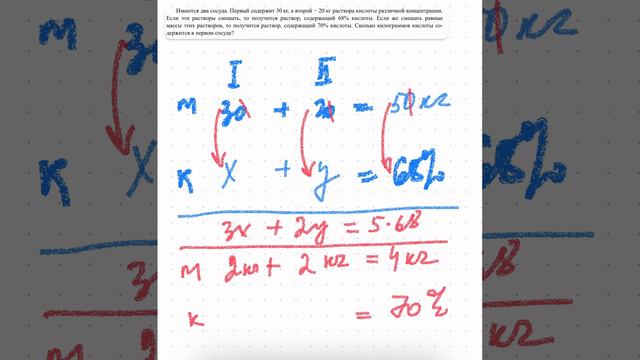 Имеются два сосуда. Первый содержит 30 кг, а второй − 20 кг раствора кислоты различной концентрации.
Если эти растворы смешать, то получится раствор, содержащий 68% кислоты. Если же смешать равные
массы этих растворов, то получится раствор, содержащий 70% кислоты. Сколько килограммов кислоты со-
держится в первом сосуде?
I II
м 30 + 20 = 50 кг
к x + y = 68%
3x + 2y = 5·68
м 2кг + 2 кг = 4 кг
к = 70%